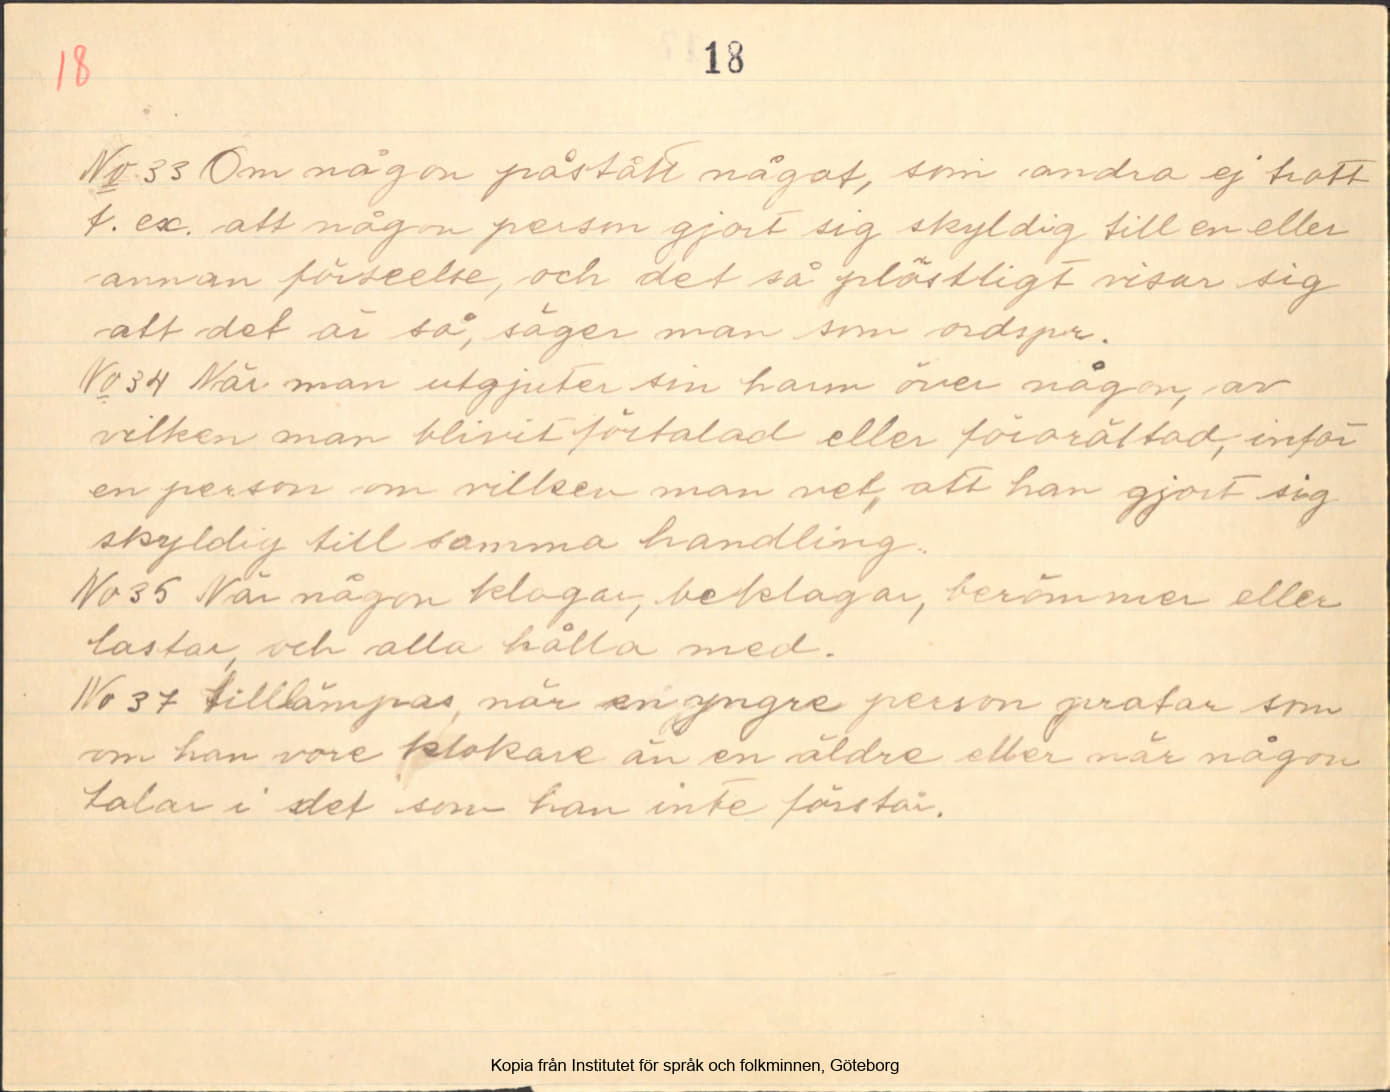 18
18
No 33 Om någon påstått något, som andra ej trott
t. ex. att någon person gjort sig skyldig till en eller
annan förseelse, och det så plöstligt visar sig
att det är så, säger man som ordspr.
No 34 När man utgjuter sin harm över någon, av
vilken man blivit förtalad eller förorättad, inför
en person om vilken man vet, att han gjort sig
skyldig till samma handling.
No 35 När någon klagar, beklagar, berömmer eller
lastar, och alla hålla med.
No 37 tilllämpas, när en yngre person pratar som
om han vore klokare än en äldre eller när någon
talar i det som han inte förstår.
Kopia från Institutet för språk och folkminnen, Göteborg